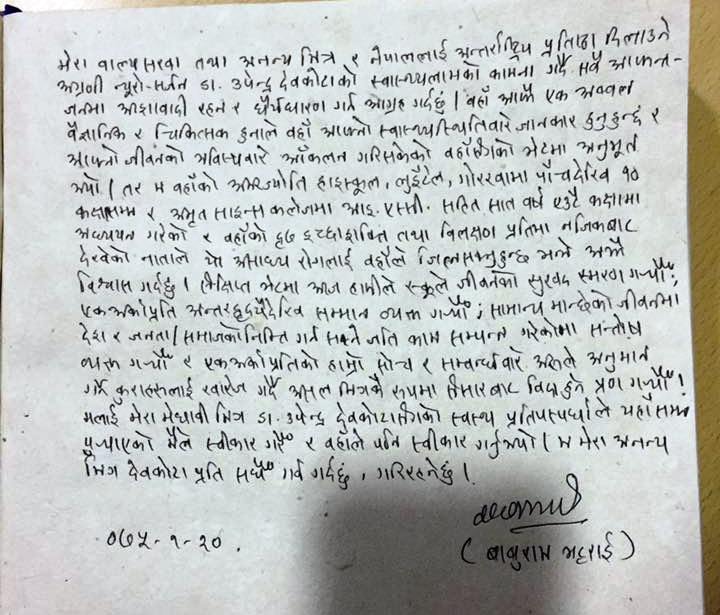 मेरा बाल्यसखा तथा अनन्य मित्र र नेपाललाई अन्तर्राष्ट्रिय प्रतिष्ठा दिलाउने
अग्रणी न्यूरो-सर्जन डा. उपेन्द्र देवकोटाको स्वास्थ्यलाभको कामना गर्दै सबै आफन्त-
जनमा आशावादी रहन र धैर्यधारण गर्न आग्रह गर्दछु । वहाँ आफै एक अव्वल
वैज्ञानिक र चिकित्सक हुनाले वहाँ आफ्नो स्वास्थ्यस्थितिबारे जानकार हुनुहुन्छ र
आफ्नो जीवनको भविष्यबारे आँकलन गरिसकेको वहाँसँगको भेटमा अनुभूत
भयो । तर म वहाँको अमरज्योति हाइस्कूल, लुइँटेल, गोरखामा पाँचदेखि १०
कक्षासम्म र अमृत साइन्स कलेजमा आइ. एस्सी. सहित सात वर्ष एउटै कक्षामा
अध्ययन गरेको र वहाँको दृढ इच्छाशक्ति तथा विलक्षण प्रतिभा नजिकबाट
देखेको नाताले यो असाध्य रोगलाई वहाँले जित्नसक्नुहुन्छ भन्ने अझै
विश्वास गर्दछु । संक्षिप्त भेटमा आज हामीले स्कूले जीवनको सुखद स्मरण गर्यौं;
एकअर्काप्रति अन्तरहृदयैदेखि सम्मान व्यक्त गर्यौं; सामान्य मान्छेको जीवनमा
देश र जनता/समाजकोनिम्ति गर्न सक्ने जति काम सम्पन्न गरेकोमा सन्तोष
व्यक्त गर्यौं र एकअर्काप्रतिको हाम्रो सोच र सम्बन्धबारे अरुले अनुमान
गर्ने कुराहरुलाई खारेज गर्दै असल मित्रकै रुपमा संसारबाट विदा हुने प्रण गर्यौं ।
मलाई मेरा मेधावी मित्र डा. उपेन्द्र देवकोटासँगको स्वस्थ प्रतिस्पर्धाले यहाँसम्म
पुर्याएको मैले स्वीकार गरें र वहाँले पनि स्वीकार गर्नुभयो । म मेरा अनन्य
मित्र देवकोटा प्रति सधैं गर्व गर्दछु, गरिरहनेछु ।
०७५-१-२०.
(बाबुराम भट्टराई)